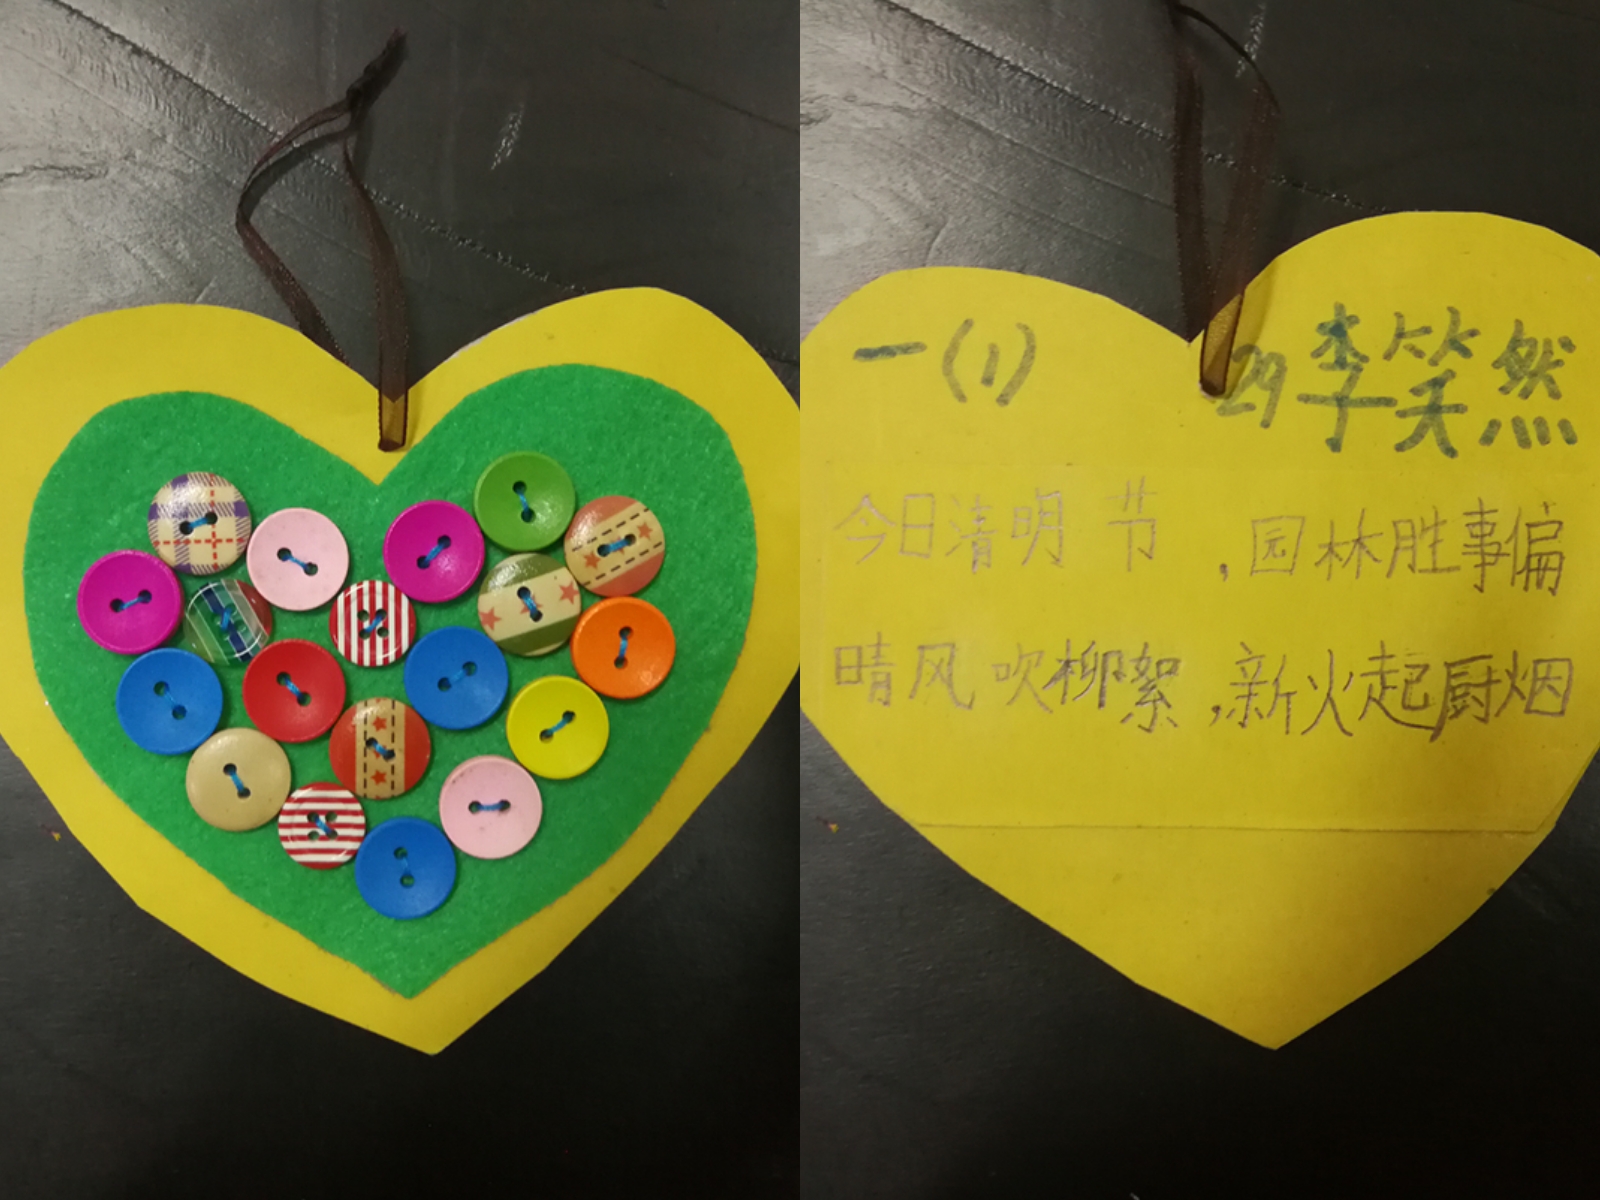 一(1) 29李笑然
今日清明节,园林胜事偏
晴风吹柳絮,新火起厨烟